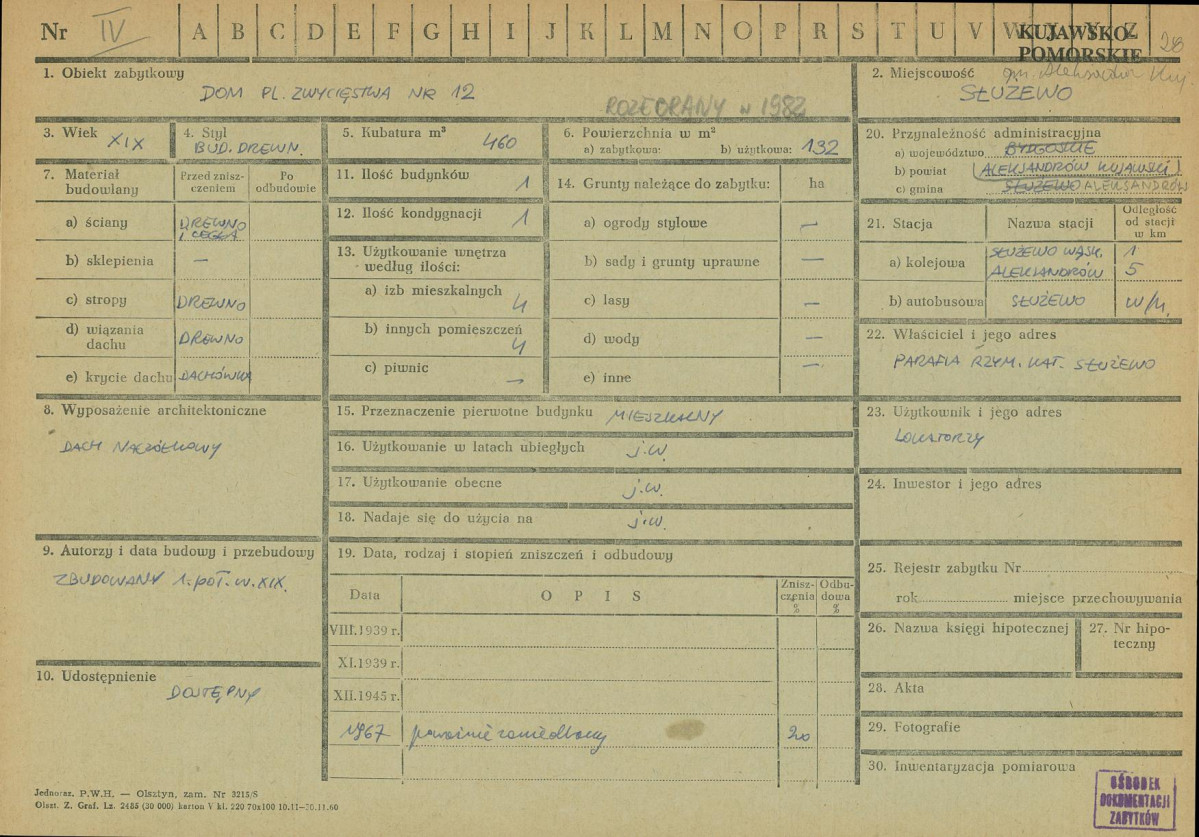 Nr IV A B C D E F G H I J K L M N O P R S T U V W X Y Z 28
KUJAWSKO-
POMORSKIE
1. Obiekt zabytkowy
DOM PL. ZWYCIĘSTWA NR 12
ROZEBRANY w 1982
2. Miejscowość gm. Aleksandrów Kuj.
SŁUŻEWO
3. Wiek
XIX
4. Styl
BUD. DREWN.
5. Kubatura m³
460
6. Powierzchnia w m²
a) zabytkowa: b) użytkowa: 132
7. Materiał budowlany
Przed zniszczeniem
Po odbudowie
a) ściany DREWNO
I CEGŁA
b) sklepienia —
c) stropy DREWNO
d) wiązania
dachu DREWNO
e) krycie dachu DACHÓWKA
8. Wyposażenie architektoniczne
DACH NACZÓŁKOWY
9. Autorzy i data budowy i przebudowy
ZBUDOWANY 1. POŁ. W. XIX.
10. Udostępnienie
DOSTĘPNY
11. Ilość budynków 1
12. Ilość kondygnacji 1
13. Użytkowanie wnętrza
według ilości:
a) izb mieszkalnych
4
b) innych pomieszczeń
4
c) piwnic —
14. Grunty należące do zabytku: ha
a) ogrody stylowe —
b) sady i grunty uprawne —
c) lasy —
d) wody —
e) inne —
15. Przeznaczenie pierwotne budynku MIESZKALNY
16. Użytkowanie w latach ubiegłych j.w.
17. Użytkowanie obecne j.w.
18. Nadaje się do użycia na j.w.
19. Data, rodzaj i stopień zniszczeń i odbudowy
Data O P I S Zniszczenia % Odbudowa %
VIII.1939 r.
XI.1939 r.
XII.1945 r.
1967 poważnie zaniedbany 20
20. Przynależność administracyjna
a) województwo BYDGOSKIE
b) powiat ALEKSANDRÓW KUJAWSKI
c) gmina SŁUŻEWO ALEKSANDRÓW
21. Stacja Nazwa stacji Odległość
od stacji
w km
a) kolejowa SŁUŻEWO WĄSK. 1
ALEKSANDRÓW 5
b) autobusowa SŁUŻEWO w/m.
22. Właściciel i jego adres
PARAFIA RZYM. KAT. SŁUŻEWO
23. Użytkownik i jego adres
LOKATORZY
24. Inwestor i jego adres
25. Rejestr zabytku Nr
rok miejsce przechowywania
26. Nazwa księgi hipotecznej
27. Nr hipo-
teczny
28. Akta
29. Fotografie
30. Inwentaryzacja pomiarowa
OŚRODEK
DOKUMENTACJI
ZABYTKÓW
Jednoraz. P.W.H. — Olsztyn, zam. Nr 3215/S
Olszt. Z. Graf. Lz. 2485 (30 000) karton V kl. 220 70x100 10.11—30.11.60